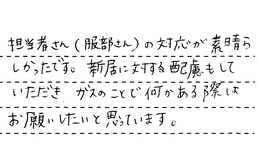 担当者さん(服部さん)の対応が素晴ら
しかったです。新居に対する配慮もして
いただき ガスのことで何かある際は
お願いしたいと思っています。